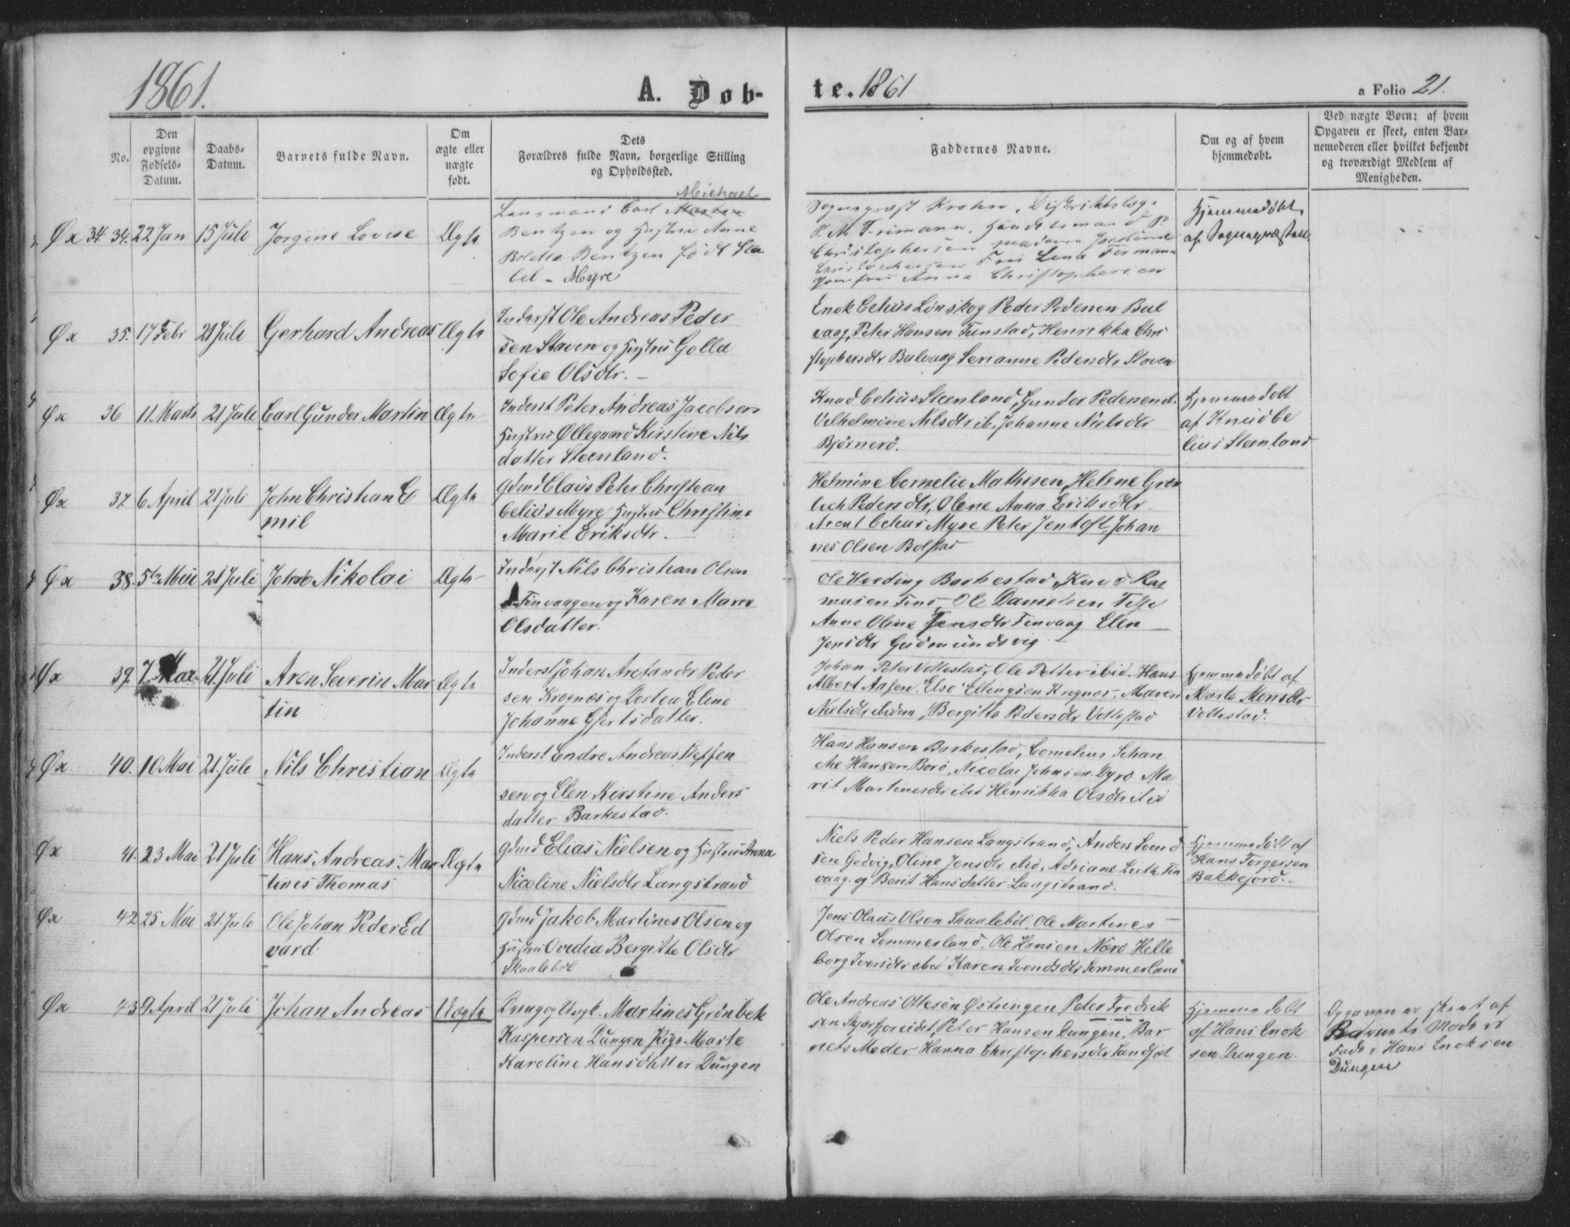 1861.
A. Døb-
te. 1861
a Folio 21.
No.
Den
opgivne
Fødsels-
Datum.
Daabs-
Datum.
Barnets fulde Navn.
Om
ægte eller
uægte
født.
Dets
Forældres fulde Navn, borgerlige Stilling
og Opholdssted.
Faddernes Navne.
Om og af hvem
hjemmedøbt.
Ved uægte Børn: af hvem
Opgaven er skeet, enten Bar-
nemoderen eller hvilket bekjendt
og troværdigt Medlem af
Menigheden.
Øx 34 34. 22 Jan 15 Jule Jørgine Lovise Ægte
Michael
Lensmand Carl
Bentzen og Hustru Anne
Boletta Bentzen født
Myre
Sogneprest Krohn, Distriktslæge
Christophersen
Lena
Anna Christophersen
Hjemmedøbt
af Sognepræsten
Øx 35. 17 Febr 21 Jule Gerhard Andreas Ægte
Inderst Ole Andreas Peder
sen Staven og Hustru Golla
Sofie Olsdtr. -
Enok Celius Lønskog Peder Pedersen Bal
vaag, Peter Hansen Finstad, Henrikka Chri
stophersdtr Balvaag Serianne Pedersdtr Staven
Øx 36 11. Marts 21 Jule Carl Gunder Martin Ægte
Inderst Peter Andreas Jacobsen
Hustru Øllegaard Kirstine Nils
datter Steenland.
Knud Celius Steenland, Gunder Pedersen
Vilhelmine Nilsdtr ib, Johanne Nielsdtr
Bjørnerø.
Hjemmedøbt
af Knud Ce
lius Steenland
Øx 37. 6 April 21 Juli John Christian E
mil
Ægte
Gdmd Claus Peter Christian
Celius Myre, Hustru Christine
Marie Eriksdtr. -
Helmine Cornelie Mathisen, Helene Grøn
bech Pedersdtr, Olene Anna Eriksdtr
Arent Celius Myre Peter Jentoft Johan
nes Olsen Bolstad
Øx 38. 5te Mai 21 Juli Johan Nikolai Ægte
Inderst Nils Christian Olsen
Finvaagen og Karen Maria
Olsdatter.
Ole Harding Barkestad, Knud Ras
musen Ole Danielsen
Anne Oline Jensdtr Finvaag Elen
Jensdtr Gudmundsvig
Øx 39. 7. Mai 21 Juli Aron Severin Mar
tin
Ægte
Inderst Johan Arctander Peder
sen Kragnes og Dortea Elene
Johanne Gjertsdatter.
Johan Peter Vottestad, Ole Petter ibid, Hans
Albert Aasen, Else Ellingsen Kragnes, Maren
Nielsdtr ibidem, Bergitte Pedersdtr Vottestad
Hjemmedøbt af
Marte Monsdtr
Vottestad.
Øx 40. 10 Mai 21 Jule Nils Christian Ægte
Inderst Endre Andreas Steffen
sen og Elen Kirstine Anders
datter Barkestad.
Hans Hansen Barkestad, Cornelius Johan
Hansen Borø, Nicolai Johnsen Ma
rit Martinesdtr ibid Henrikka Olsdtr ibid
Øx 41. 23 Mai 21 Juli Hans Andreas Mar
tines Thomas
Ægte
Gdmd Elias Nielsen og Hustru Anna
Nicoline Nielsdtr Langstrand
Niels Peder Hansen Langstrand, Anders Svend
sen Godvig, Oline Jensdtr ibid, Adriane Fin
vaag og Berit Hansdatter Langstrand.
Hjemmedøbt af
Hans Torgersen
Bakkejord. -
Øx 42. 25 Mai 21 Jule Ole Johan Peder Ed
vard
Gdmd Jakob Martines Olsen og
Hustru Ovedia Bergitte Olsdtr
Skaalebøl
Jens Olaus Olsen Skaalebøl, Ole Martines
Olsen Sommerland, Ole Hansen Nærø Helle
borg Iversdtr ibid Karen Svendsdtr Sommerland
Øx 43. 9 April 21 Juli Johan Andreas Uægte
Ungk Martines Grønbek
Kaspersen Dungen Pige Marte
Karoline Hansdatter Dungen
Ole Andreas Ottesen Østrengen Peter Fredrik
sen Skjørfjoreidet, Peter Hansen Dungen, Bar
nets Moder Hanna Christophersdtr
Hjemmedøbt
af Hans Enok
sen Dungen
Opgaven er skeet af
Barnets Moders
Fader Hans Enoksen
Dungen